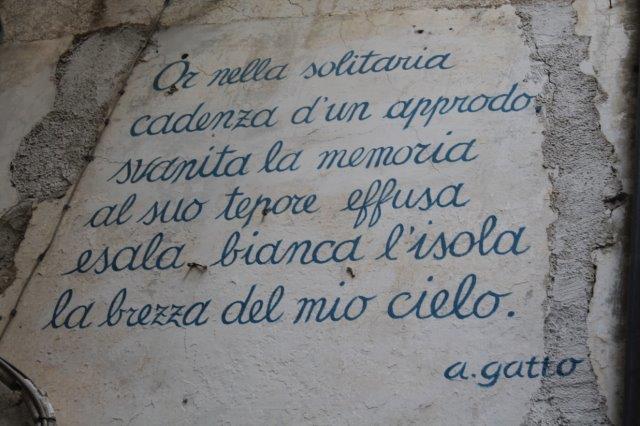 Or nella solitaria
cadenza d'un approdo.
svanita la memoria
al suo tepore effusa
esala bianca l'isola
la brezza del mio cielo.
a.gatto